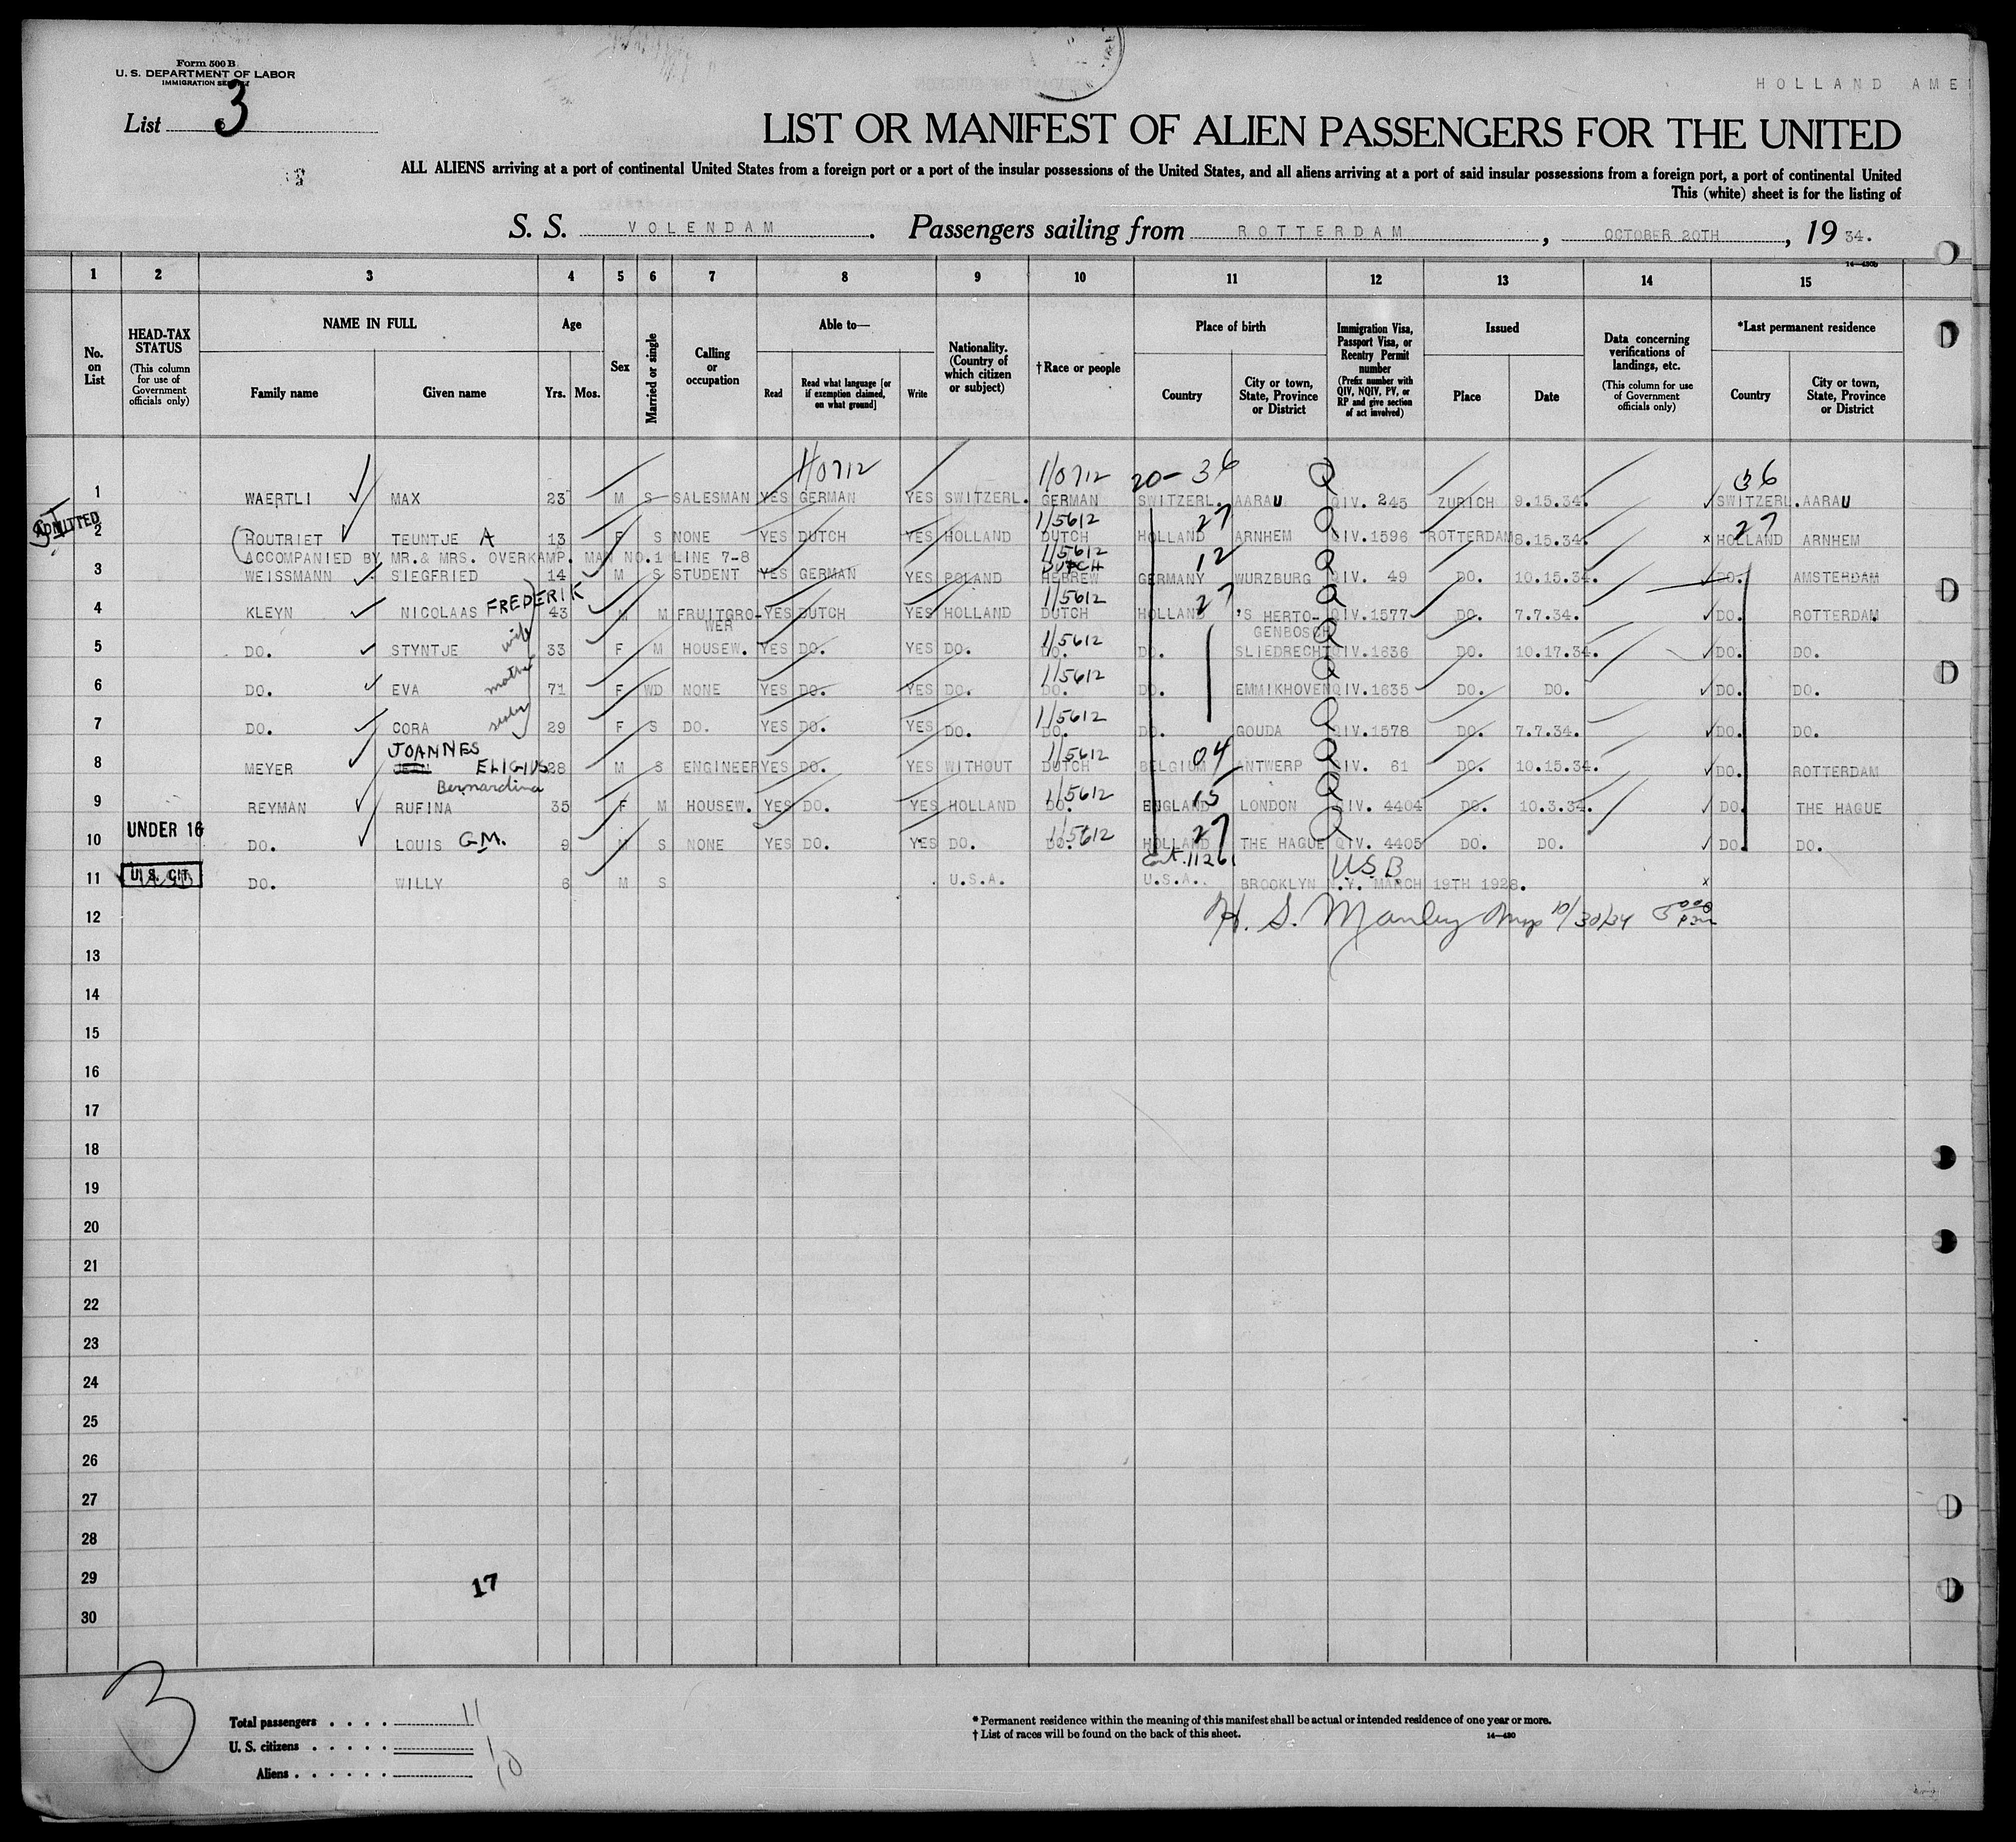 Form 500 B
U. S. DEPARTMENT OF LABOR
IMMIGRATION SERVICE
HOLLAND AME
List 3
LIST OR MANIFEST OF ALIEN PASSENGERS FOR THE UNITED
ALL ALIENS arriving at a port of continental United States from a foreign port or a port of the insular possessions of the United States, and all aliens arriving at a port of said insular possessions from a foreign port, a port of continental United
This (white) sheet is for the listing of
S. S. VOLENDAM. Passengers sailing from ROTTERDAM, OCTOBER 20TH, 1934.
14—430b
1 2 3 4 5 6 7 8 9 10 11 12 13 14 15
No. on List
HEAD-TAX STATUS (This column for use of Government officials only)
NAME IN FULL Family name Given name
Age Yrs. Mos.
Sex
Married or single
Calling or occupation
Able to— Read Read what language [or if exemption claimed, on what ground] Write
Nationality. (Country of which citizen or subject)
†Race or people
Place of birth Country City or town, State, Province or District
Immigration Visa, Passport Visa, or Reentry Permit number (Prefix number with QIV, NQIV, PV, or RP and give section of act involved)
Issued Place Date
Data concerning verifications of landings, etc. (This column for use of Government officials only)
*Last permanent residence Country City or town, State, Province or District
1/0712 1/0712 20- 36 Q 36
1 WAERTLI MAX 23 M S SALESMAN YES GERMAN YES SWITZERL. GERMAN SWITZERL. AARAU QIV. 245 ZURICH 9.15.34. SWITZERL. AARAU
ADMITTED 1/5612 27 Q 27
2 HOUTRIET TEUNTJE A 13 F S NONE YES DUTCH YES HOLLAND DUTCH HOLLAND ARNHEM QIV.1596 ROTTERDAM 8.15.34. x HOLLAND ARNHEM
ACCOMPANIED BY MR.& MRS. OVERKAMP. MAN NO.1 LINE 7-8 1/5612 DUTCH 12 Q
3 WEISSMANN SIEGFRIED 14 M S STUDENT YES GERMAN YES POLAND HEBREW GERMANY WURZBURG QIV. 49 DO. 10.15.34. DO. AMSTERDAM
FREDERIK 1/5612 27 Q
4 KLEYN NICOLAAS 43 M M FRUITGRO-WER YES DUTCH YES HOLLAND DUTCH HOLLAND 'S HERTO-GENBOSCH QIV.1577 DO. 7.7.34. DO. ROTTERDAM
wife 1/5612 Q
5 DO. STYNTJE 33 F M HOUSEW. YES DO. YES DO. DO. DO. SLIEDRECHT QIV.1636 DO. 10.17.34. DO. DO.
mother 1/5612 Q
6 DO. EVA 71 F WD NONE YES DO. YES DO. DO. DO. EMMIKHOVEN QIV.1635 DO. DO. DO. DO.
sister 1/5612 Q
7 DO. CORA 29 F S DO. YES DO. YES DO. DO. DO. GOUDA QIV.1578 DO. 7.7.34. DO. DO.
JOANNES ELIGIUS 1/5612 04 Q
8 MEYER JEAN 28 M S ENGINEER YES DO. YES WITHOUT DUTCH BELGIUM ANTWERP QIV. 61 DO. 10.15.34. DO. ROTTERDAM
Bernardina 1/5612 15 Q
9 REYMAN RUFINA 35 F M HOUSEW. YES DO. YES HOLLAND DO. ENGLAND LONDON QIV. 4404 DO. 10.3.34. DO. THE HAGUE
UNDER 16 1/5612 27 Q
10 DO. LOUIS G.M. 9 M S NONE YES DO. YES DO. DO. HOLLAND THE HAGUE QIV. 4405 DO. DO. DO. DO.
U.S. CIT. 11261 USB
11 DO. WILLY 6 M S U.S.A. U.S.A. BROOKLYN N.Y. MARCH 19TH 1928. x
12 H. S. Manley Insp 10/30/34
13
14
15
16
17
18
19
20
21
22
23
24
25
26
27
28
29 17
30
3
Total passengers 11
U. S. citizens 1
Aliens 10
* Permanent residence within the meaning of this manifest shall be actual or intended residence of one year or more.
† List of races will be found on the back of this sheet.
14—430